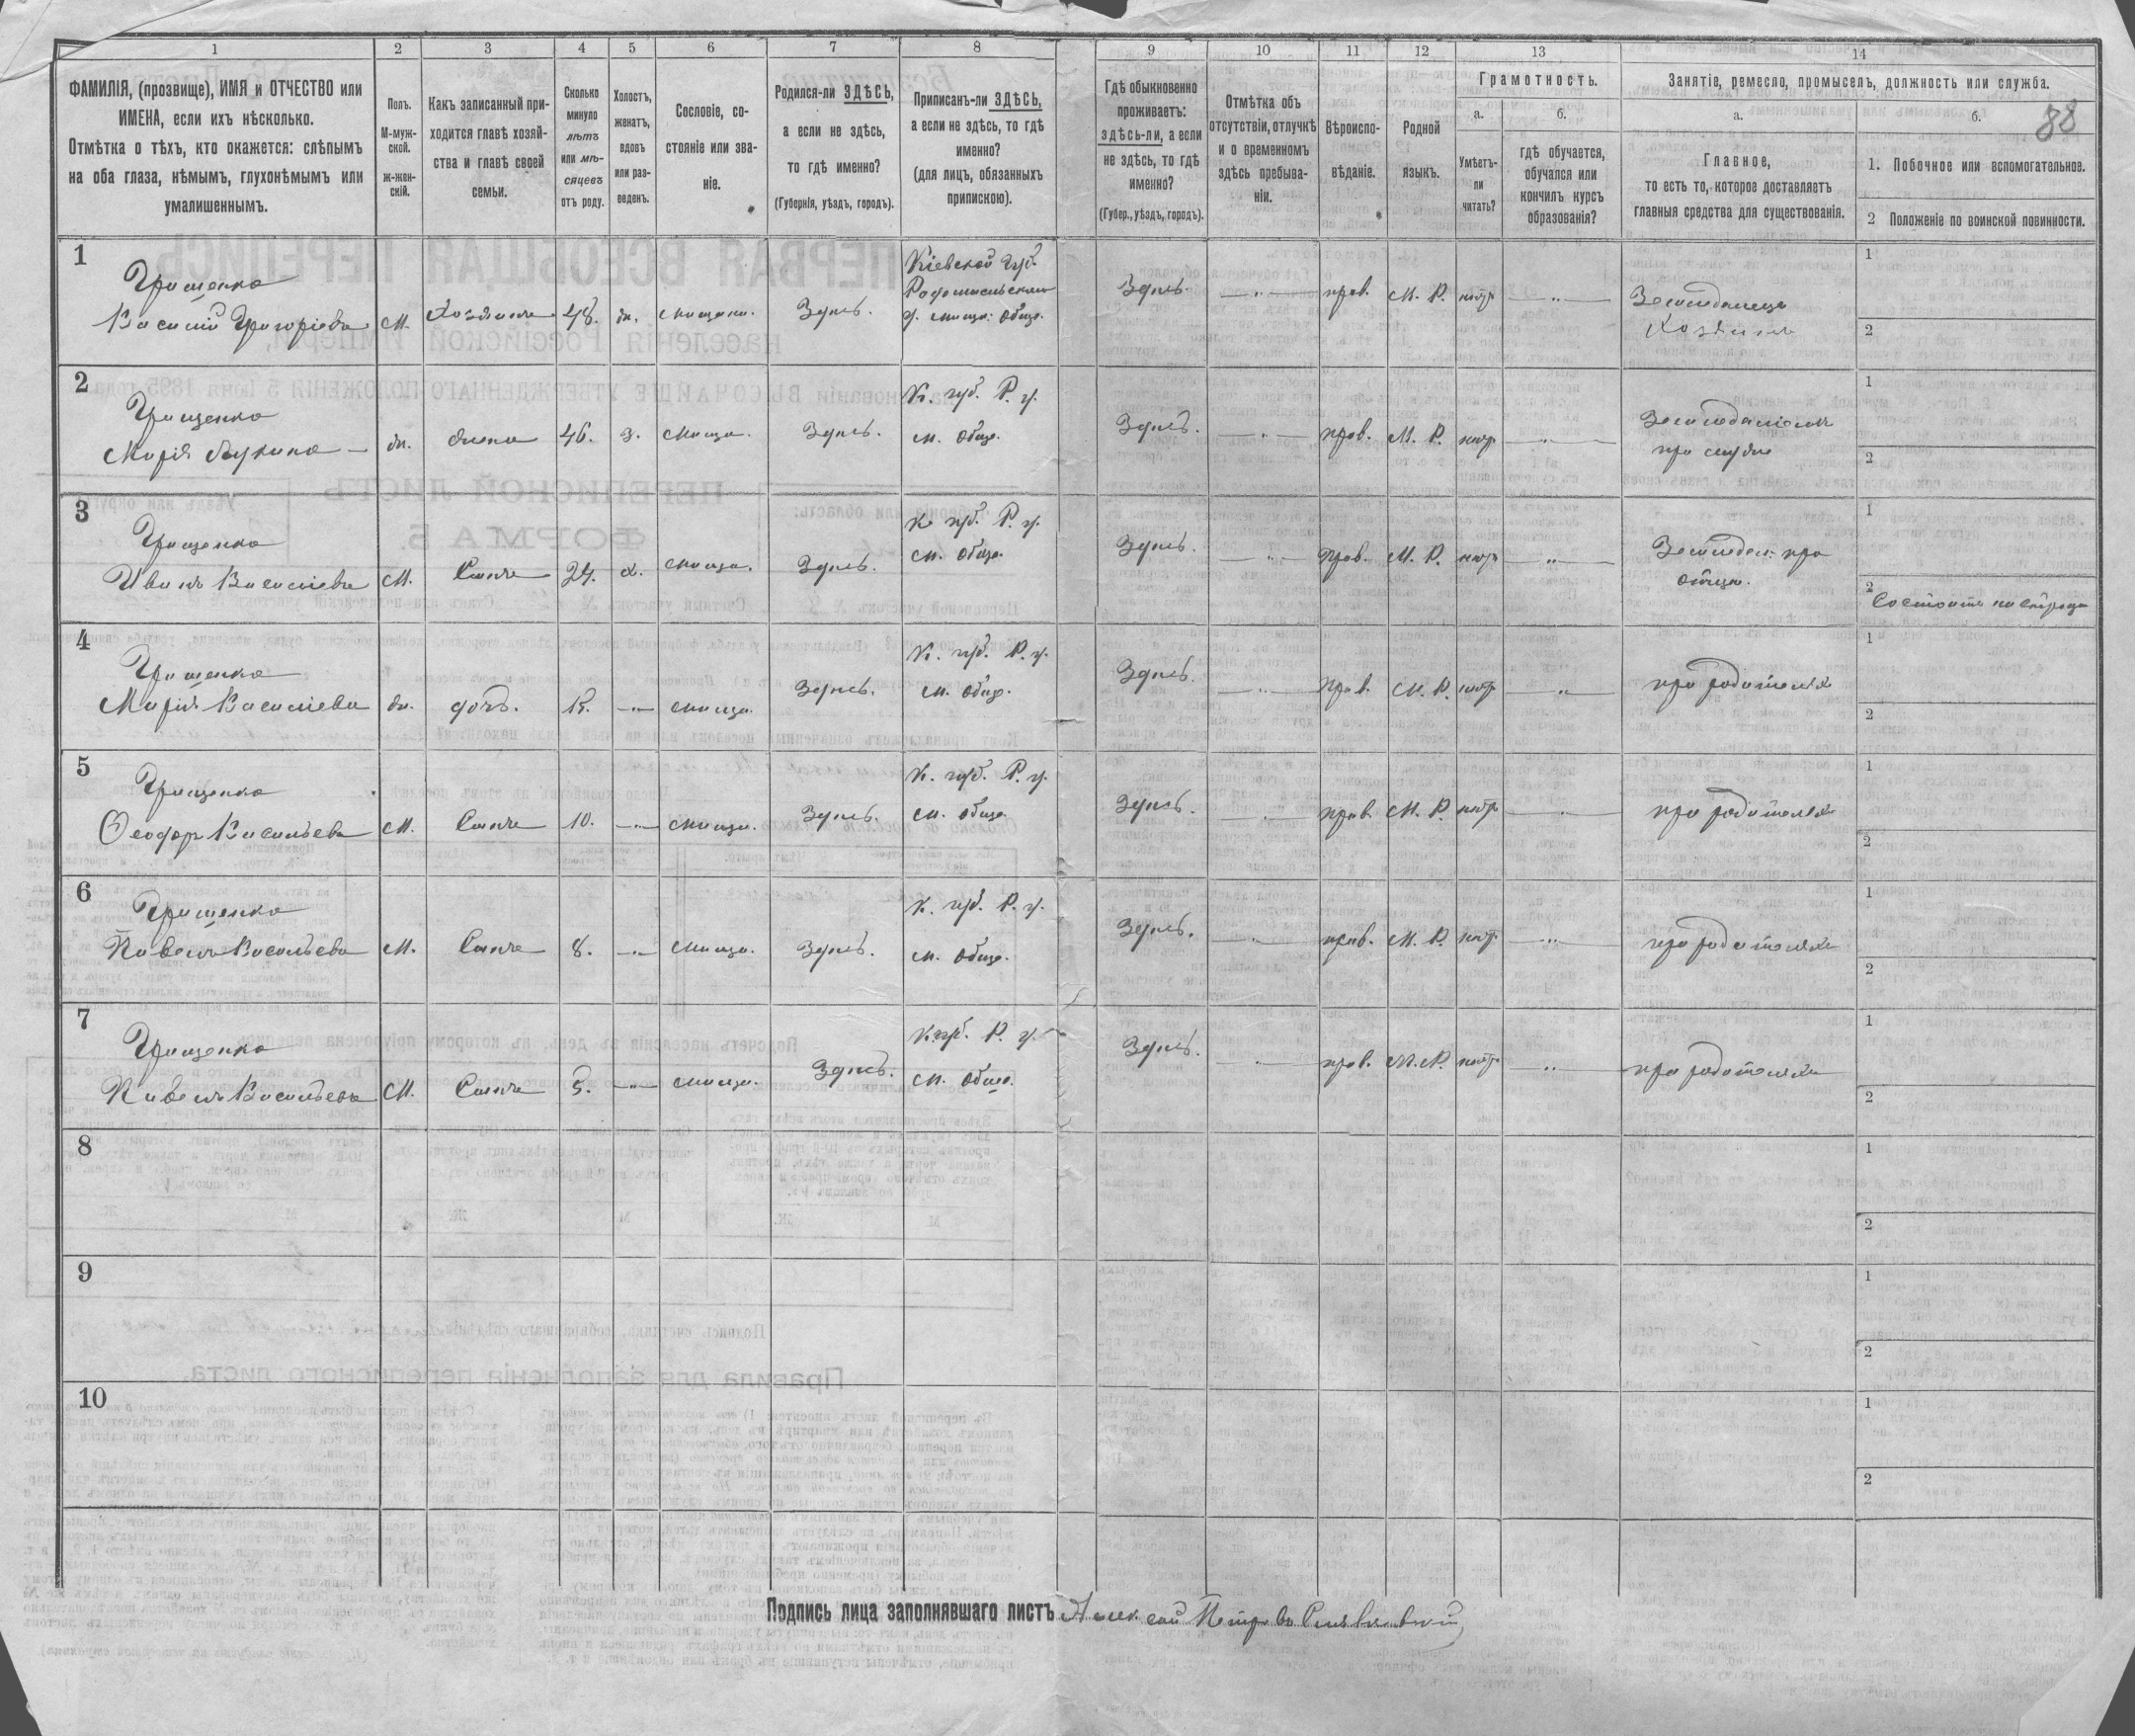 1 2 3 4 5 6 7 8 9 10 11 12 13 14
88
ФАМИЛІЯ, (прозвище), ИМЯ и ОТЧЕСТВО или
ИМЕНА, если ихъ нѣсколько.
Отмѣтка о тѣхъ, кто окажется: слѣпымъ
на оба глаза, нѣмымъ, глухонѣмымъ или
умалишеннымъ.
Полъ.
М-муж-
ской.
ж-жен-
скій.
Какъ записанный при-
ходится главѣ хозяй-
ства и главѣ своей
семьи.
Сколько
минуло
лѣтъ
или мѣ-
сяцевъ
отъ роду.
Холостъ,
женатъ,
вдовъ
или раз-
веденъ.
Сословіе, со-
стояніе или зва-
ніе.
Родился-ли ЗДѢСЬ,
а если не здѣсь,
то гдѣ именно?
(Губернія, уѣздъ, городъ).
Приписанъ-ли ЗДѢСЬ,
а если не здѣсь, то гдѣ
именно?
(для лицъ, обязанныхъ
припискою).
Гдѣ обыкновенно
проживаетъ:
здѣсь-ли, а если
не здѣсь, то гдѣ
именно?
(Губер., уѣздъ, городъ).
Отмѣтка объ
отсутствіи, отлучкѣ
и о временномъ
здѣсь пребыва-
ніи.
Вѣроиспо-
вѣданіе.
Родной
языкъ.
Грамотность.
а.
Умѣетъ-
ли
читать?
б.
гдѣ обучается,
обучался или
кончилъ курсъ
образованія?
Занятіе, ремесло, промыселъ, должность или служба.
а.
Главное,
то есть то, которое доставляетъ
главныя средства для существованія.
б.
1. Побочное или вспомогательное.
2 Положеніе по воинской повинности.
1
Грищенко
Василій Григоріевъ М. Хозяинъ 48. жн. мѣщан. Здѣсь.
Кіевской губ.
Радомысльскаго
у. мѣщ. общ.
Здѣсь. прав. М. Р. нѣтъ
Земледѣлецъ
Хозяинъ
1
2
2
Грищенко
Марія жн. жена 46. з. мѣщ. Здѣсь.
К. губ. Р. у.
м. общ.
Здѣсь. прав. М. Р. нѣтъ
при мужѣ
1
2
3
Грищенко
Иванъ Василіевъ М. Сынъ 24. х. мѣщ. Здѣсь.
К. губ. Р. у.
м. общ.
Здѣсь. прав. М. Р. нѣтъ
Земледѣл. при
отцѣ.
1
2
4
Грищенко
Марія Василіева жн. дочь. мѣщ. Здѣсь.
К. губ. Р. у.
м. общ.
Здѣсь. прав. М. Р. нѣтъ
при родителяхъ
1
2
5
Грищенко
Ѳеодоръ Васильевъ М. Сынъ 10. мѣщ. Здѣсь.
К. губ. Р. у.
м. общ.
Здѣсь. прав. М. Р. нѣтъ
при родителяхъ
1
2
6
Грищенко
Павелъ Васильевъ М. Сынъ 8. мѣщ. Здѣсь.
К. губ. Р. у.
м. общ.
Здѣсь. прав. М. Р. нѣтъ
при родителяхъ
1
2
7
Грищенко
Павелъ Васильевъ М. Сынъ 5. мѣщ. Здѣсь.
К. губ. Р. у.
м. общ.
Здѣсь. прав. М. Р. нѣтъ
при родителяхъ
1
2
8
1
2
9
1
2
10
1
2
Подпись лица заполнявшаго листъ Алексѣй Петровъ